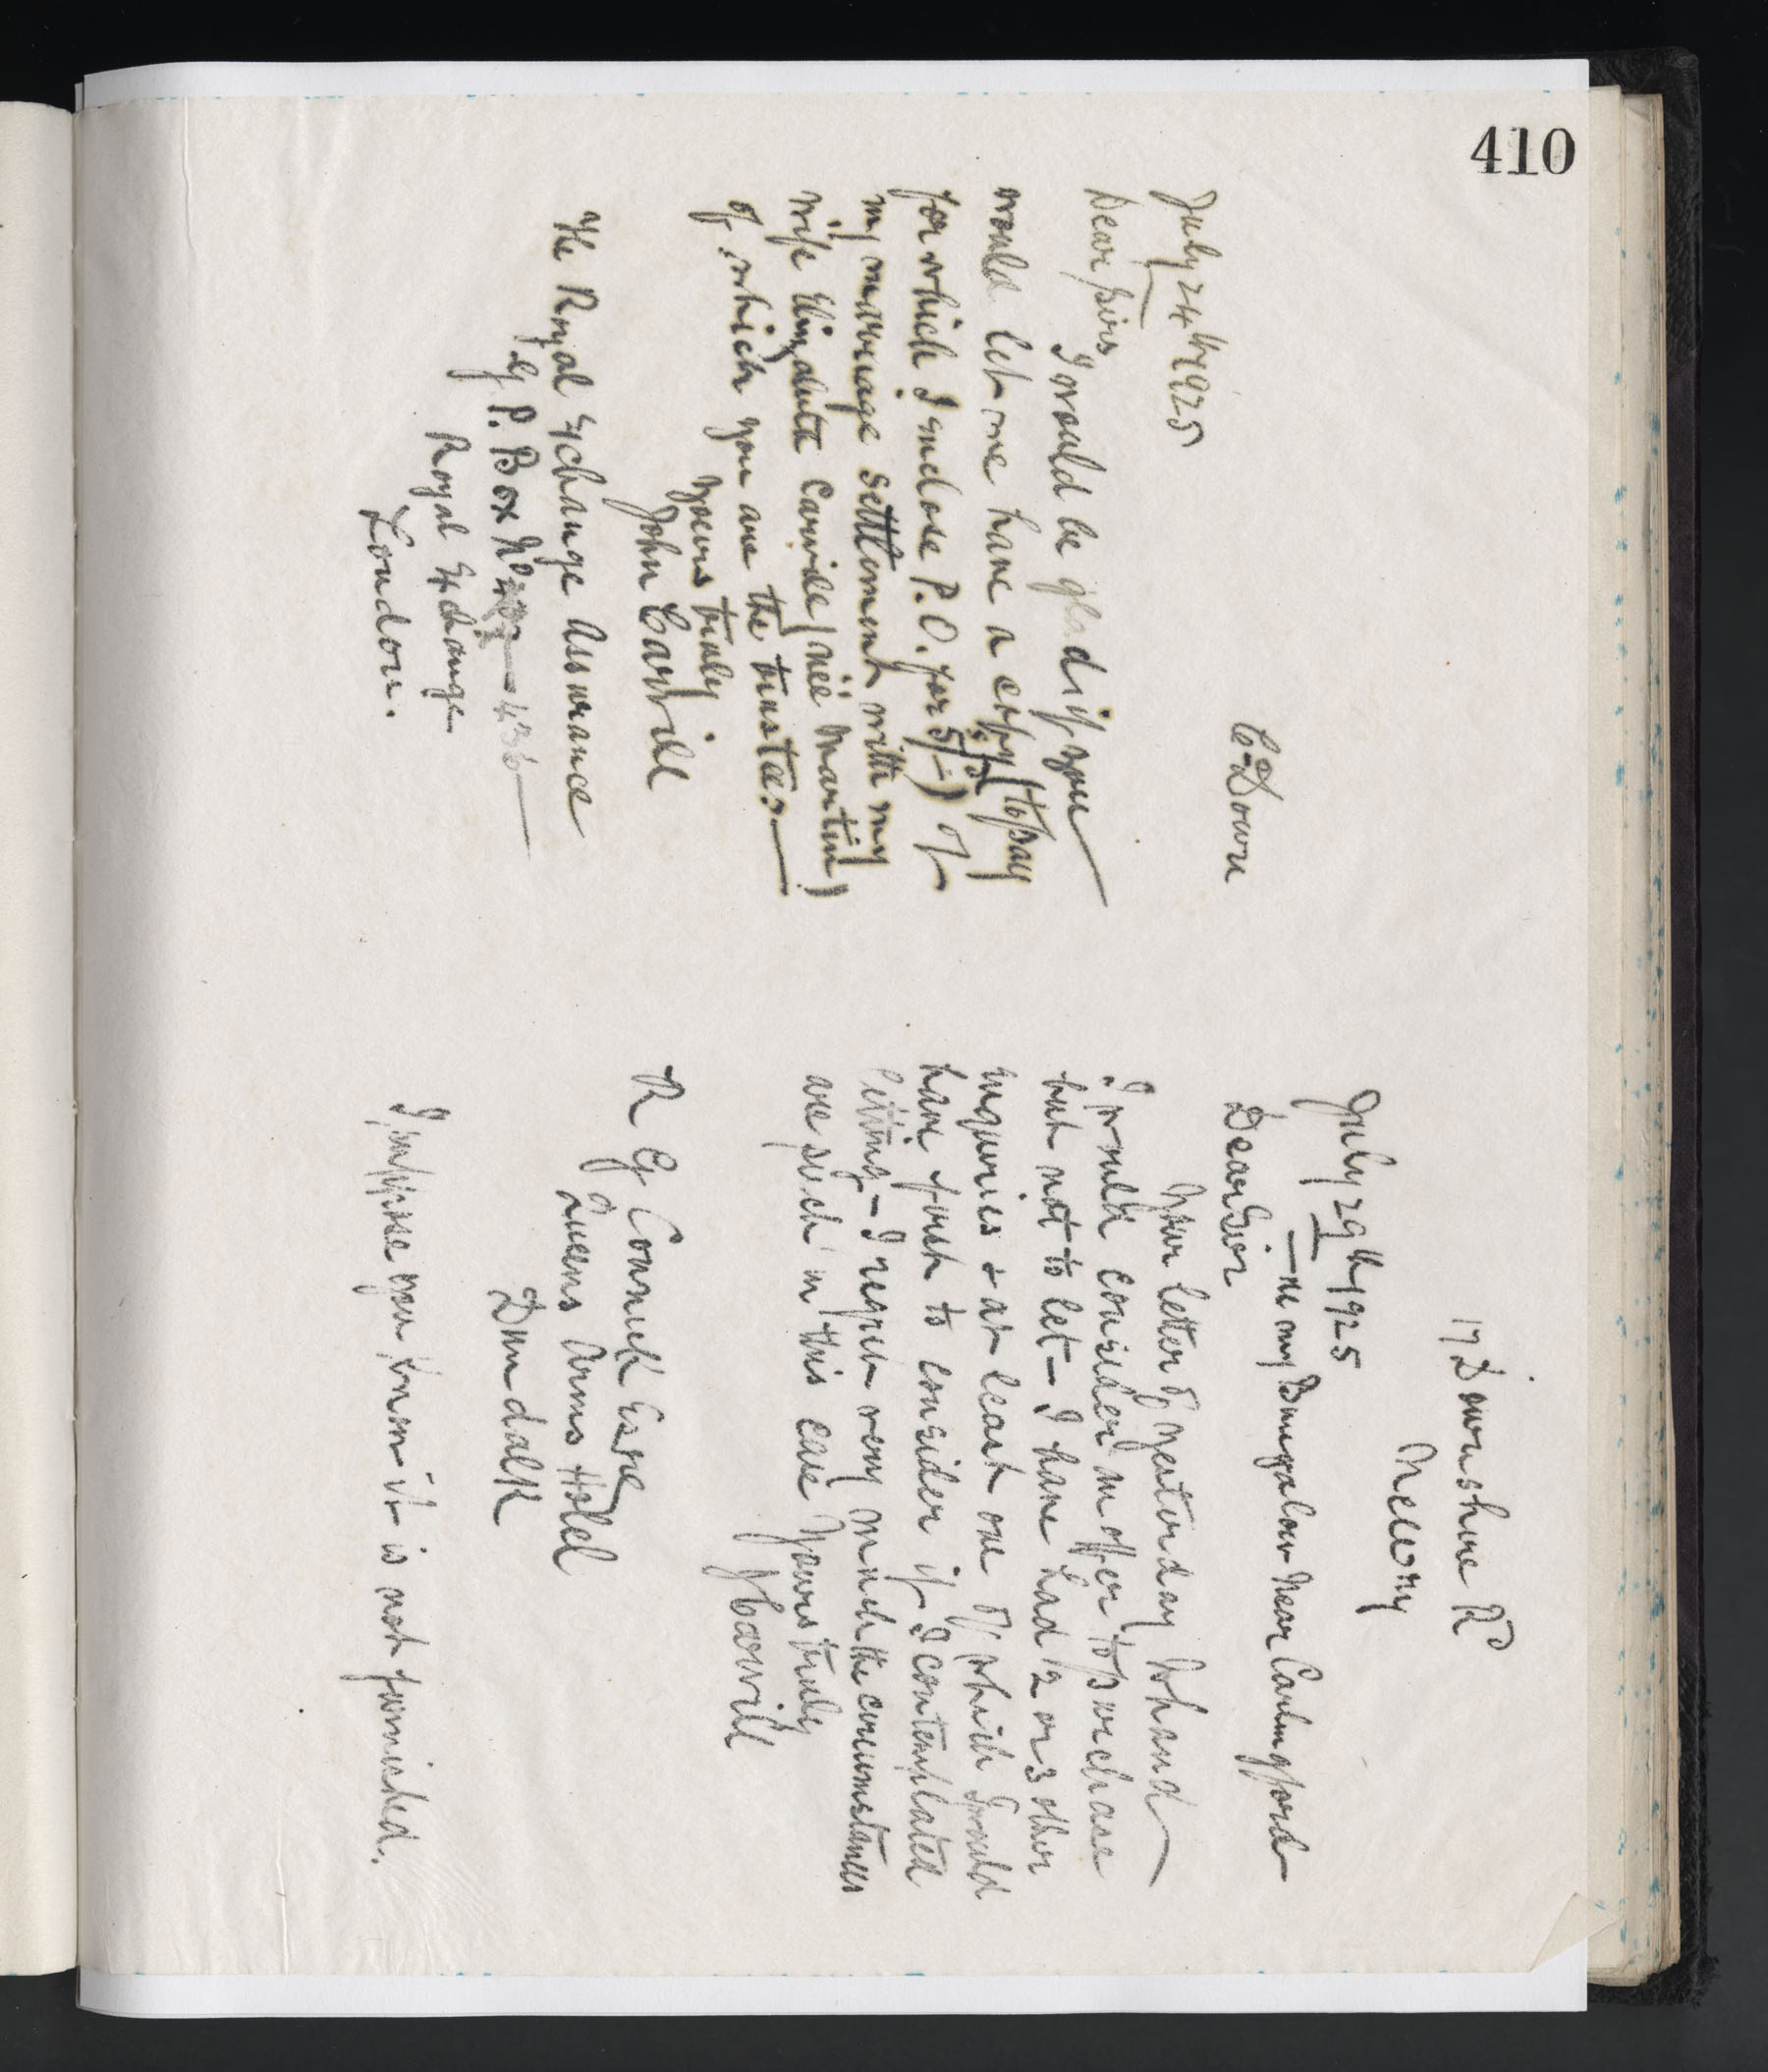 410
Co Down
July 24th 1925
Dear Sirs
I would be glad if you
would let me have a copy (to pay
for which I enclose P.O. for 5/-) of
my marriage settlement with my
wife Elizabeth Carvill (née Martin)
of which you are the trustees.
Yours truly
John Carvill
The Royal Exchange Assurance
G P. Box No 436
Royal Exchange
London.
17 Downshire Rd
Newry
July 29th 1925
re my Bungalow near Carlingford
Dear Sir
Your letter of yesterday to hand
I would consider an offer to purchase
but not to let - I have had 2 or 3 other
inquiries & at least one of which I would
have first to consider if I contemplated
letting - I regret very much the circumstances
are such in this case Yours truly
J Carvill
R G Connick Esqre
Queens Arms Hotel
Dundalk
I suppose you know it is not furnished.